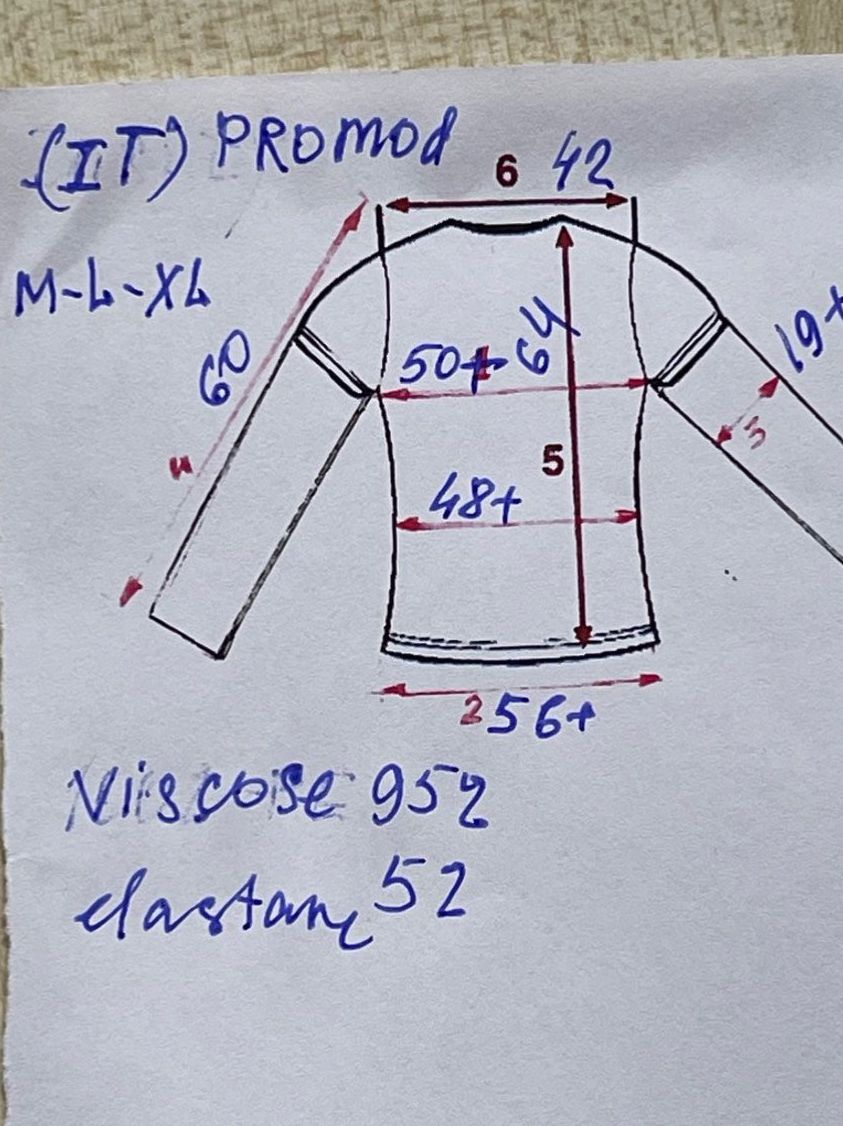 (IT) PROMOD
6 42
M-L-XL
60
19+
50+
64
3
4
5
48+
2 56+
Viscose 95%
elastane 5%